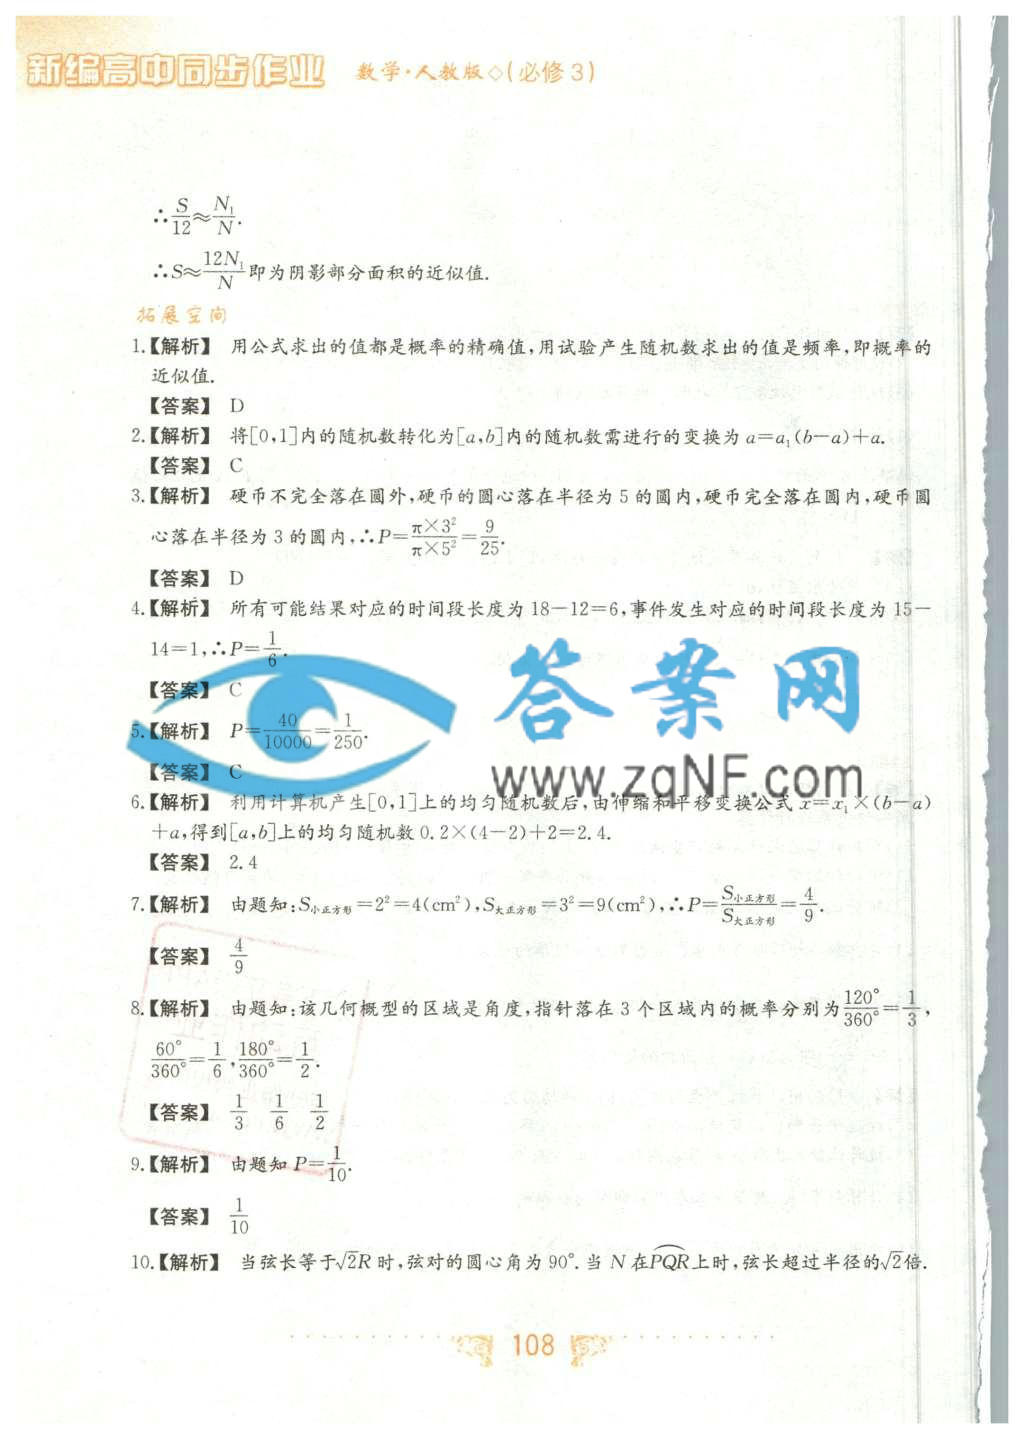 新编高中同步作业 数学·人教版◇(必修3)
∴S/12≈N₁/N.
∴S≈12N₁/N即为阴影部分面积的近似值.
拓展空间
1.【解析】 用公式求出的值都是概率的精确值,用试验产生随机数求出的值是频率,即概率的
近似值.
【答案】 D
2.【解析】 将[0,1]内的随机数转化为[a,b]内的随机数需进行的变换为a=a₁(b-a)+a.
【答案】 C
3.【解析】 硬币不完全落在圆外,硬币的圆心落在半径为5的圆内,硬币完全落在圆内,硬币圆
心落在半径为3的圆内,∴P=π×3²/π×5²=9/25.
【答案】 D
4.【解析】 所有可能结果对应的时间段长度为18-12=6,事件发生对应的时间段长度为15-
14=1,∴P=1/6.
【答案】 C
5.【解析】 P=40/10000=1/250.
【答案】 C
答案网
www.zqNF.com
6.【解析】 利用计算机产生[0,1]上的均匀随机数后,由伸缩和平移变换公式x=x₁×(b-a)
+a,得到[a,b]上的均匀随机数0.2×(4-2)+2=2.4.
【答案】 2.4
7.【解析】 由题知:S小正方形=2²=4(cm²),S大正方形=3²=9(cm²),∴P=S小正方形/S大正方形=4/9.
【答案】 4/9
8.【解析】 由题知:该几何概型的区域是角度,指针落在3个区域内的概率分别为120°/360°=1/3,
60°/360°=1/6,180°/360°=1/2.
【答案】 1/3 1/6 1/2
9.【解析】 由题知P=1/10.
【答案】 1/10
10.【解析】 当弦长等于√2R时,弦对的圆心角为90°.当N在PQR上时,弦长超过半径的√2倍.
108